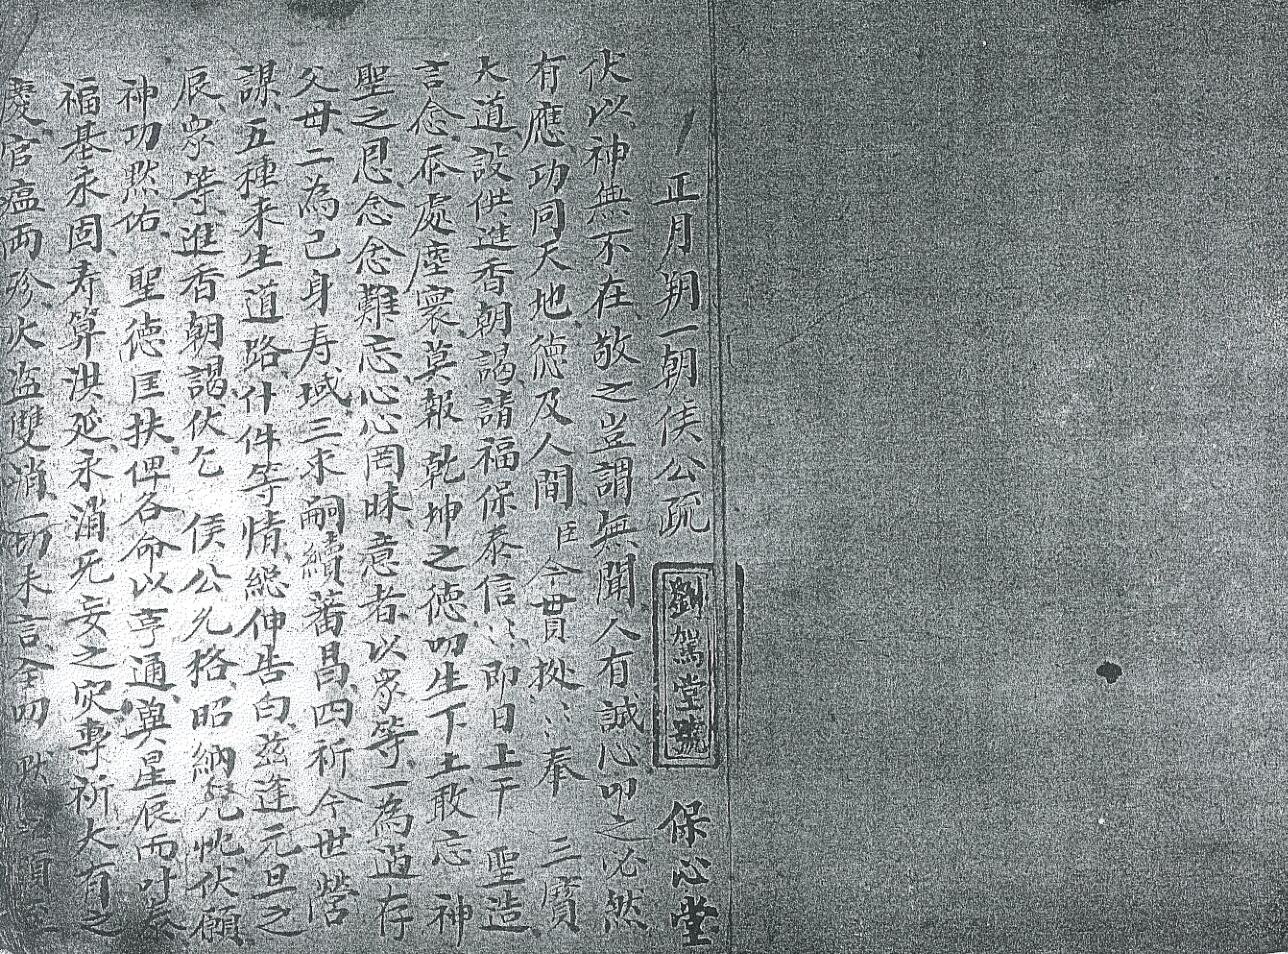 正月朔一朝侯公疏 劉駕堂號 保心堂
伏以神無不在敬之豈謂無聞人有誠心叩之必然
有應功同天地德及人間臣今貫拠奉 三寳
大道設供進香朝謁請福保泰信即日上干 聖造
言念忝處塵寰莫報乾坤之德叨生下土敢忘神
聖之恩念念難忘心心罔昧意者以衆等一為過存
父母二為己身寿域三求嗣續蕃昌四祈今世營
謀五種来生道路什件等情総伸告白兹逢元旦之
辰衆等進香朝謁伏乞 侯公允格昭納凫忱伏願
神功黙佑 聖德匡扶俾各命以亨通奠星辰而叶泰
福基永固寿算洪延永消旡妄之灾專祈大有之
慶官瘟両殄火盗雙消一切未言全叨